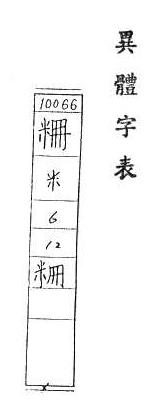 異體字表
10066
粣
米
6
12